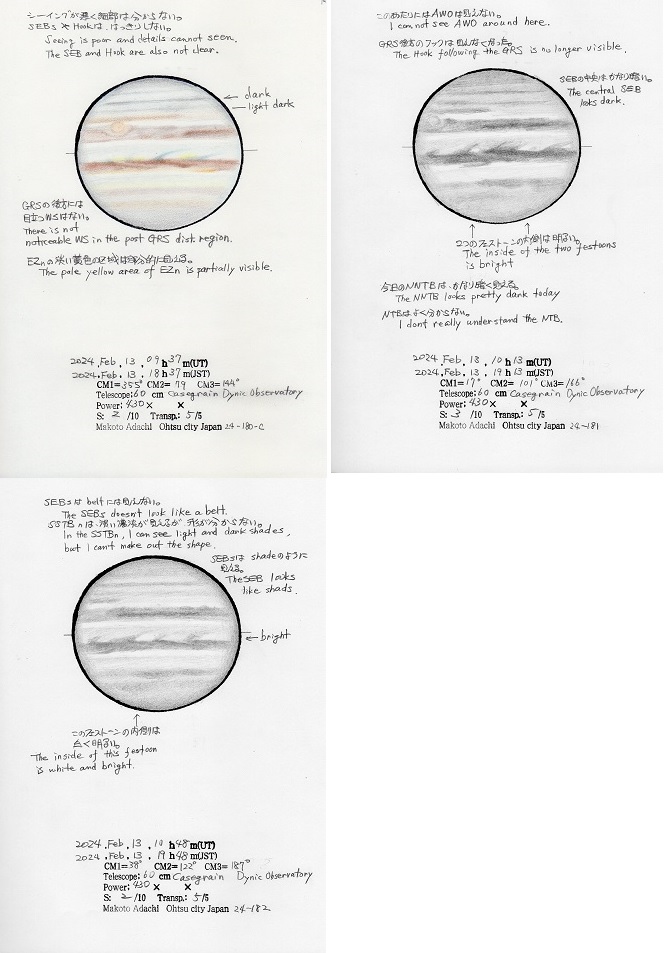 シーイングが悪く細部は分からない。
SEBs や Hookは、はっきりしない。
Seeing is poor and details cannot be seen.
The SEB and Hook are also not clear.
dark
light dark
GRSの後方には
目立つWSはない。
There is not
noticeable WS in the post GRS disk region.
EZnの淡い黄色の区域は部分的に見える。
The pale yellow area of EZn is partially visible.
2024 .Feb . 13 . 09 h 37 m(UT)
2024 .Feb . 13 . 18 h 37 m(JST)
CM1=355° CM2= 79 CM3=144°
Telescope:60 cm Cassegrain Dynic Observatory
Power: 430 × ×
S: 2 /10 Transp.: 5/5
Makoto Adachi Ohtsu city Japan 24-180-C
このあたりにはAWOは見えない。
I can not see AWO around here.
GRS後方のフックは見えなくなった。
The Hook following the GRS is no longer visible.
SEBの中央はかなり暗い。
The central SEB
loks dark.
2つのフェストーンの内側は明るい。
The inside of the two festoons
is bright
今日のNNTBは、かなり暗く見える。
The NNTB looks pretty dark today
NTBはよく分からない。
I dont really understand the NTB.
2024 .Feb . 13 . 10 h 13 m(UT)
2024 .Feb . 13 . 19 h 13 m(JST)
CM1=17° CM2= 101° CM3=166°
Telescope:60 cm Casegrain Dynic Observatory
Power: 430 × ×
S: 3 /10 Transp.: 5/5
Makoto Adachi Ohtsu city Japan 24-181
SEBsは beltには見えない。
The SEBs doesn't look like a belt.
SSTBnは、濃い濃淡が見えるが、形が分からない。
In the SSTBn, I can see light and dark shades,
but I can't make out the shape.
SEBsは shadeのように
見える。
The SEB looks
like shads.
bright
このフェストーンの内側は
白く明るい。
The inside of this festoon
is white and bright.
2024 .Feb . 13 . 10 h 48 m(UT)
2024 .Feb . 13 . 19 h 48 m(JST)
CM1=38° CM2=122° CM3=187°
Telescope:60 cm Casegrain Dynic Observatory
Power: 430 × ×
S: 2 /10 Transp.: 5/5
Makoto Adachi Ohtsu city Japan 24-182